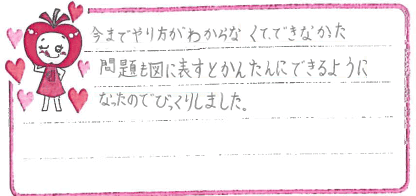 今までやり方がわからなくて、できなかった
問題も図に表すとかんたんにできるように
なったのでびっくりしました。